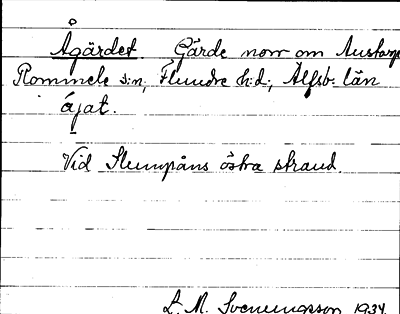 Ågärdet Gärde norr om Austorp
Rommele s:n, Flundre h:d, Älfsb. län
åjat.
Vid Slumpåns östra strand.
L. M. Svenungsson 1934.